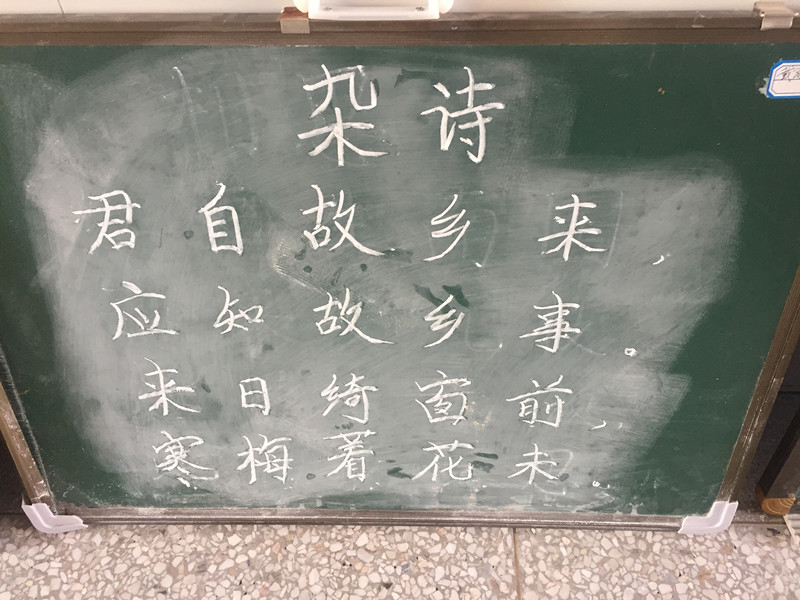 杂诗
君自故乡来，
应知故乡事。
来日绮窗前，
寒梅着花未。